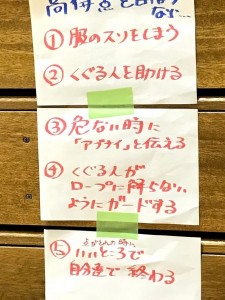 高得点を目指す
なら…
① 服のスソをしまう
② くぐる人を助ける
③ 危ない時に
「アブナイ」と伝える
④ くぐる人が
ロープに触らない
ようにガードする
点がとれた時に
⑤ いいところで
自分達で終わる